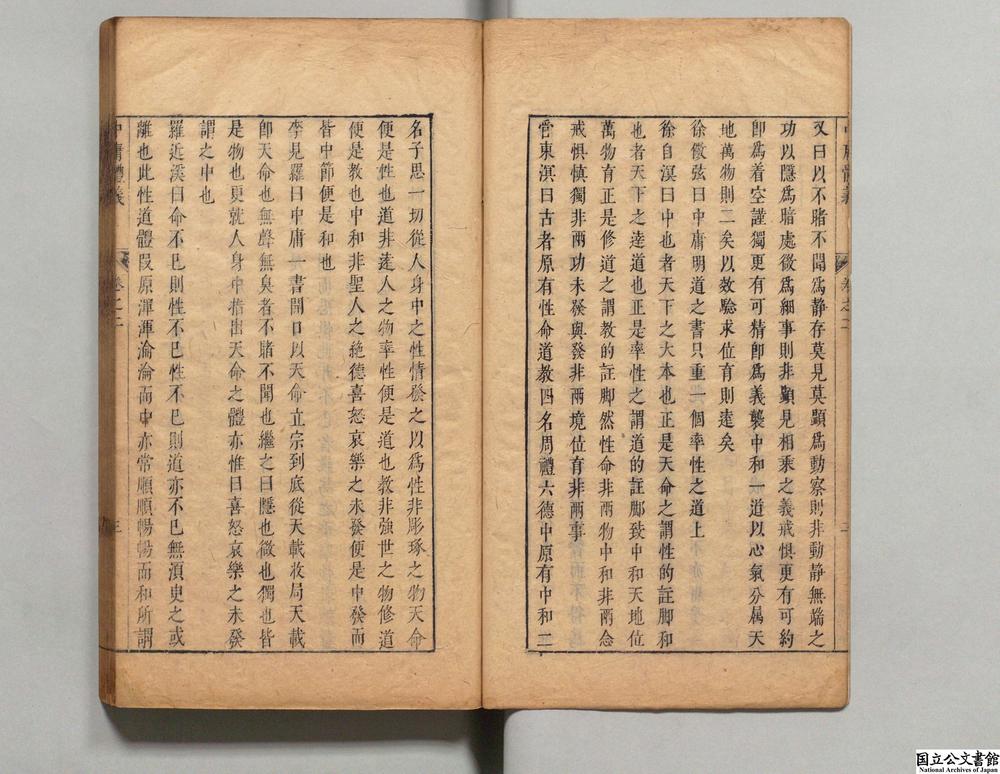 又曰以不睹不聞爲静存莫見莫顯爲動察則非動静無端之
功以隱爲暗處微爲細事則非顯見相乘之義戒惧更有可約
卽爲着空謹獨更有可精卽爲義襲中和一道以心氣分属天
地萬物則二矣以效驗求位育則逺矣
徐儆弦曰中庸明道之書只重一個率性之道上
徐自溟曰中也者天下之大本也正是天命之謂性的註脚和
也者天下之逹道也正是率性之謂道的註脚致中和天地位
萬物育正是修道之謂教的註脚然性命非兩物中和非兩念
戒惧慎獨非兩功未發與發非兩境位育非兩事
管東溟曰古者原有性命道教四名周禮六德中原有中和二
中庸體義
卷之二
名子思一切從人身中之性情發之以爲性非彫琢之物天命
便是性也道非逺人之物率性便是道也教非強世之物修道
便是教也中和非聖人之絶德喜怒哀樂之未發便是中發而
皆中節便是和也
李見羅曰中庸一書開口以天命立宗到底從天載收局天載
卽天命也無聲無臭者不睹不聞也繼之曰隱也微也獨也皆
是物也更就人身中指出天命之體亦惟曰喜怒哀樂之未發
謂之中也
羅近溪曰命不已則性不已性不已則道亦不已無湏臾之或
離也此性道體段原渾渾淪淪而中亦常順順暢暢而和所謂
中庸體義
卷之二
三
国立公文書館
National Archives of Japan